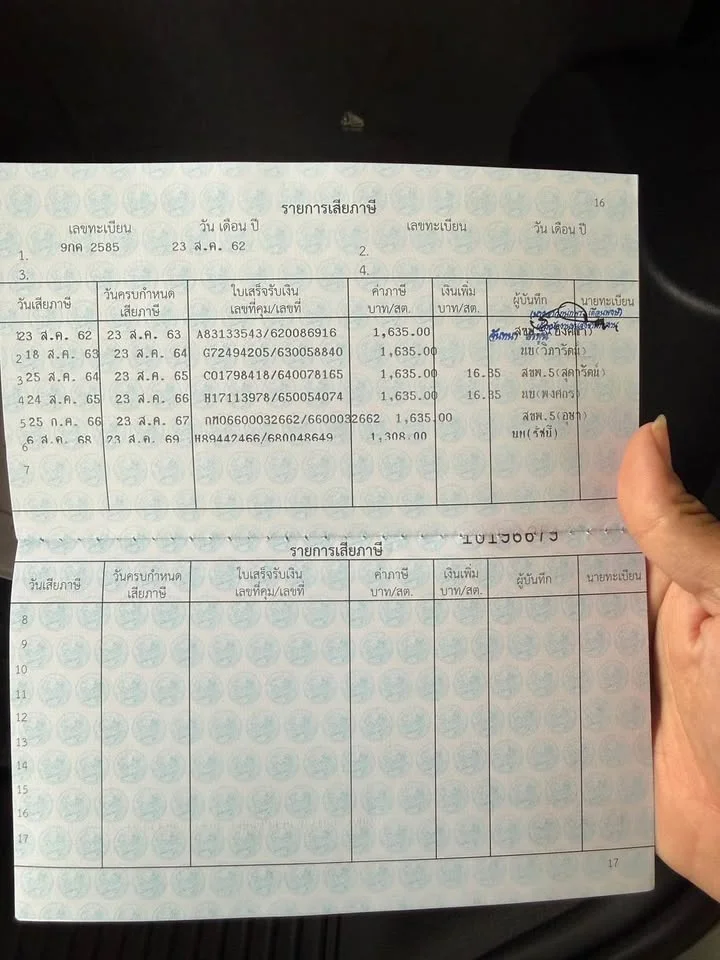 16
รายการเสียภาษี
เลขทะเบียน วัน เดือน ปี เลขทะเบียน วัน เดือน ปี
1. 9กค 2585 23 ส.ค. 62 2.
3. 4.
วันเสียภาษี วันครบกำหนด เสียภาษี ใบเสร็จรับเงิน เลขที่คุม/เลขที่ ค่าภาษี บาท/สต. เงินเพิ่ม บาท/สต. ผู้บันทึก นายทะเบียน
1 23 ส.ค. 62 23 ส.ค. 63 A83133543/620086916 1,635.00
2 18 ส.ค. 63 23 ส.ค. 64 G72494205/630058840 1,635.00 นย(วิภารัตน์)
3 25 ส.ค. 64 23 ส.ค. 65 C01798418/640078165 1,635.00 16.35 สขพ.5(สุดารัตน์)
4 24 ส.ค. 65 23 ส.ค. 66 H17113978/650054074 1,635.00 16.35 นย(พงศกร)
5 25 ก.ค. 66 23 ส.ค. 67 กท06600032662/6600032662 1,635.00 สขพ.5(อุษา)
6 6 ส.ค. 68 23 ส.ค. 69 H89442466/680048649 1,308.00
7
10196679
รายการเสียภาษี
วันเสียภาษี วันครบกำหนด เสียภาษี ใบเสร็จรับเงิน เลขที่คุม/เลขที่ ค่าภาษี บาท/สต. เงินเพิ่ม บาท/สต. ผู้บันทึก นายทะเบียน
8
9
10
11
12
13
14
15
16
17
17